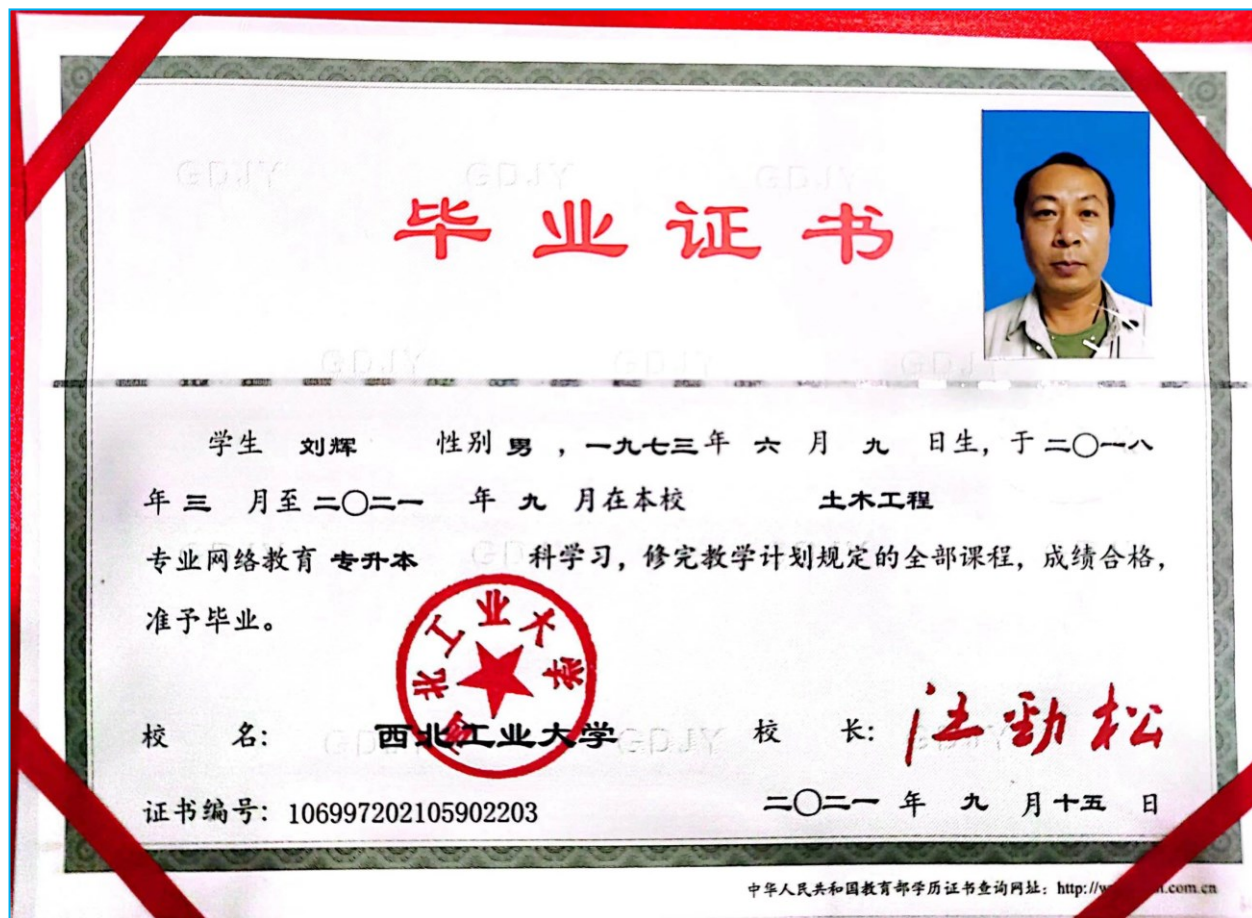 GDJY GDJY GDJY
毕业证书
GDJY GDJY GDJY
学生 刘辉 性别 男 ，一九七三年 六 月 九 日生，于 二〇一八
年 三 月至 二〇二一 年 九 月在本校 土木工程
专业网络教育 专升本 科学习，修完教学计划规定的全部课程，成绩合格，
准予毕业。
西北工业大学
校 名： 西北工业大学 校 长： 汪劲松
证书编号：106997202105902203 二〇二一 年 九 月十五 日
中华人民共和国教育部学历证书查询网址：http://w .com.cn